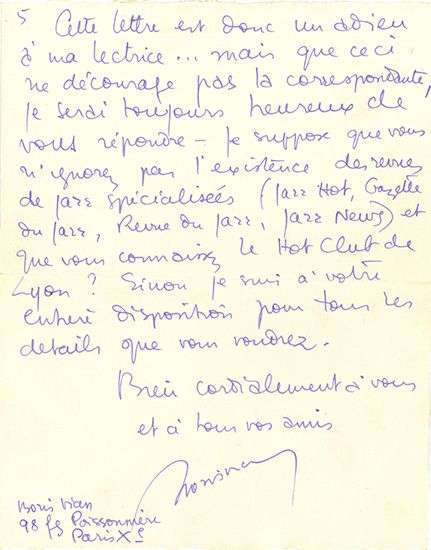 5 Cette lettre est donc un adieu
à ma lectrice... mais que ceci
ne décourage pas la correspondante,
je serai toujours heureux de
vous répondre – Je suppose que vous
n'ignorez pas l'existence des revues
de jazz spécialisées (Jazz Hot, Gazette
du Jazz, Revue du Jazz, Jazz News) et
que vous connaissez le Hot Club de
Lyon ? Sinon je suis à votre
entière disposition pour tous les
détails que vous voudrez.
Bien cordialement à vous
et à tous vos amis
Boris Vian
98 fg Poissonnière
Paris Xe